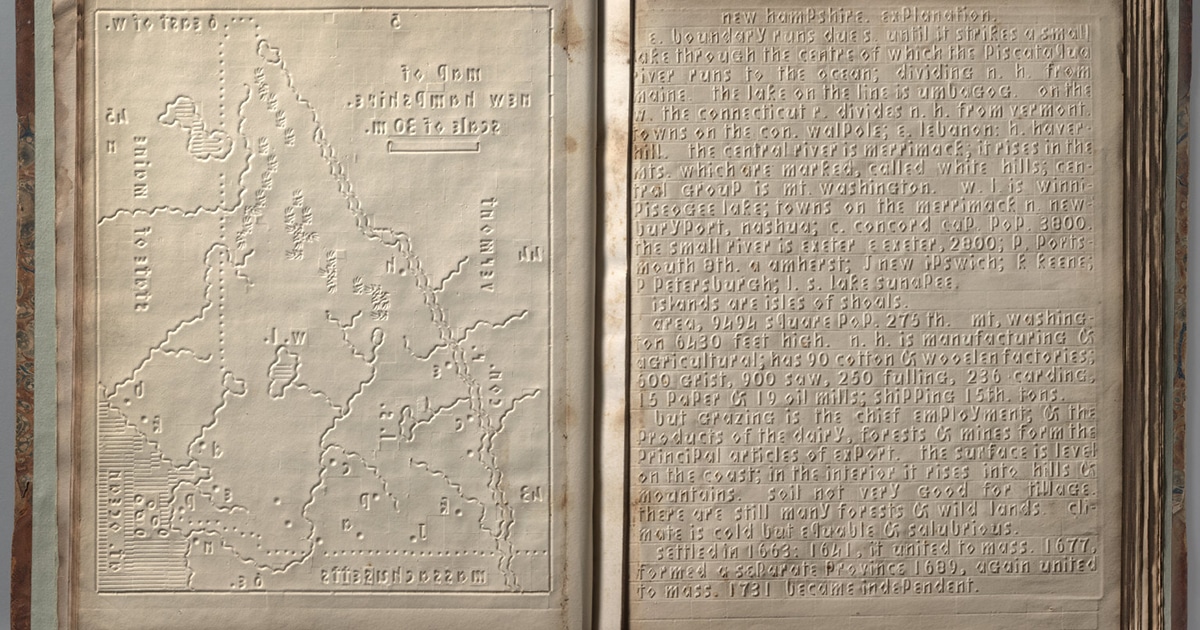 6 east of w.
5
map of
new hampshire.
scale of 30 m.
45
n
state of maine
vermont
44
h
w. l.
con. r.
h
e
p
l. s.
c
e
d
c
p
a
j
k
n
43
at. ocean
massachusetts
6 e.
new hampshire. explanation.
e. boundary runs due s. until it strikes a small
lake through the centre of which the piscataqua
river runs to the ocean; dividing n. h. from
maine. the lake on the line is umbagog. on the
w. the connecticut r. divides n. h. from vermont.
towns on the con. walpole; e. lebanon: h. haver-
hill. the central river is merrimack; it rises in the
mts. which are marked, called white hills; cen-
tral group is mt. washington. w. l. is winni-
piseogee lake; towns on the merrimack n. new-
buryport, nashua; c. concord cap. pop. 3800.
the small river is exeter e exeter, 2800; p, ports-
mouth 8th. a amherst; j new ipswich; k keene;
p petersburgh; l. s. lake sunapee.
islands are isles of shoals.
area, 9494 square pop. 275 th. mt, washing-
ton 6430 feet high. n. h. is manufacturing &
agricultural; has 90 cotton & woolen factories;
600 grist, 900 saw, 250 fulling, 236 carding,
15 paper & 19 oil mills; shipping 15th. tons.
but grazing is the chief employment; & the
products of the dairy, forests & mines form the
principal articles of export. the surface is level
on the coast; in the interior it rises into hills &
mountains. soil not very good for tillage.
there are still many forests & wild lands. cli-
mate is cold but equable & salubrious.
settled in 1663: 1641, it united to mass. 1677,
formed a separate province 1689, again united
to mass. 1731 became independent.